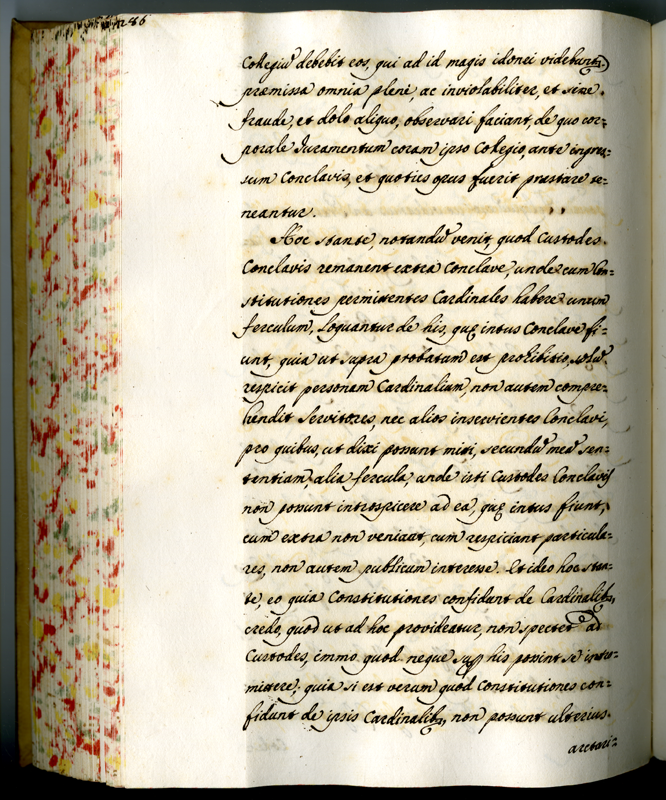 286
Collegiũ debebit eos, qui ad id magis idonei videbunt.)
præmissa omnia pleni, ac inviolabiliter, et sine
fraude, et dolo aliquo, observari faciant, de quo cor=
porale Juramentum coram ipso Collegio, ante ingres=
sum Conclavis, et quoties opus fuerit præstare te=
neantur.
Hoc stante, notandũ venit, quod Custodes
Conclavis remanent extra Conclave, unde cum Con=
stitutiones permittentes Cardinales habere unum
ferculum, loquantur de his, quę intus Conclave fi=
unt, quia ut supra probatum est prohibitio, solũ
respicit personam Cardinalium, non autem compre=
hendit servitores, nec alios inservientes Conclavi,
pro quibus, ut dixi possunt miti, secundũ meã sen=
tentiam, alia fercula, unde isti Custodes Conclavis
non possunt introspicere ad ea, quę intus fiunt,
cum extra non veniant, cum respiciant particula=
res, non autem publicum interesse. Et ideo hoc stan=
te, eo quia Constitutiones confidunt de Cardinalib,
credo, quod ut ad hoc provideatur, non spectet ad
Custodes, immo quod neque sup his possint se inter=
mittere; quia si est verum quod Constitutiones con=
fidunt de ipsis Cardinalib, non possunt ulterius
arctari=